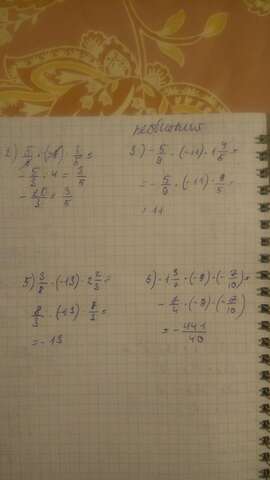 необычный
2) 5/6 · (-8) · 3/5 =
- 5/3 · 4 = 3/5
- 20/3 = 3/5
3) - 5/9 · (-11) · 1 4/5 =
= - 5/9 · (-11) · 9/5 =
= 11
5) 3/8 · (-13) · 2 2/3 =
8/3 · (-13) · 8/3 =
= - 13
6) -1 3/4 · (-9) · (- 7/10) =
- 7/4 · (-9) · (- 7/10)
= - 441/40